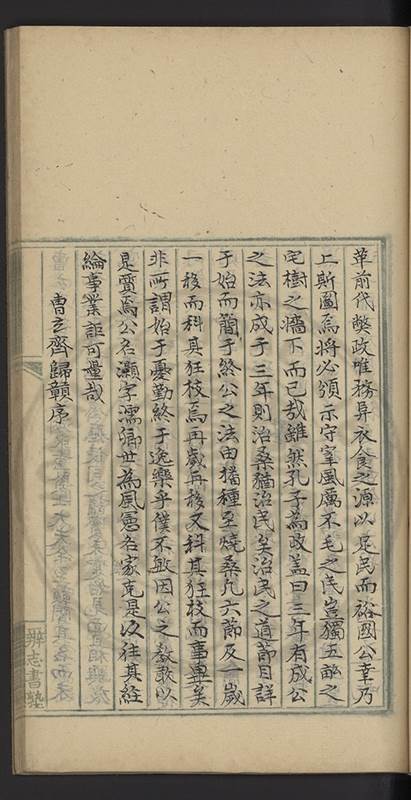 革前代弊政唯務昇衣食之源以足民而裕國公幸乃
上斯圖焉將必頒示守宰風厲不毛之民豈獨五畝之
宅樹之墻下而已哉雖然孔子為政盖曰三年有成公
之法亦成于三年則治桑猶治民矣治民之道節目詳
于始而簡于終公之法由播種至燒桑凡六節及一歲
一移而科其狂枝焉再歲再移又科其狂枝而事畢矣
非所謂始于憂勤終于逸樂乎僕不敏因公之教敢以
是質焉公名灝字濡弱世為風憲名家克是以往其經
綸事業詎可量哉
曹立齋歸贑序
辨志書塾